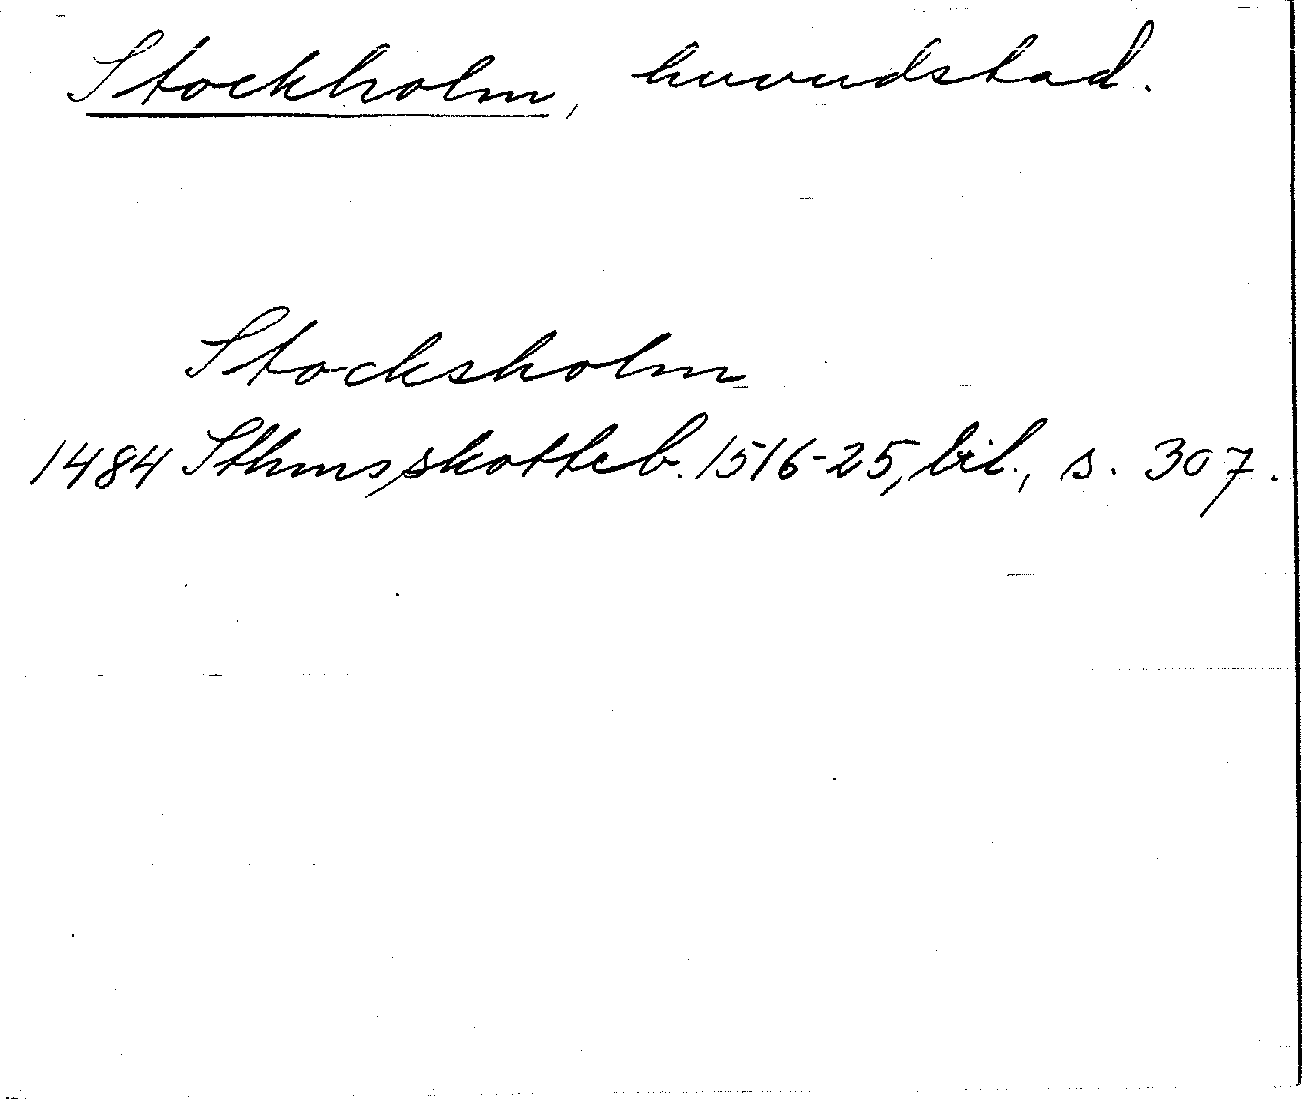 Stockholm, huvudstad.
Stocksholm
1484 Sthms skotteb. 1516-25, bil., s. 307.